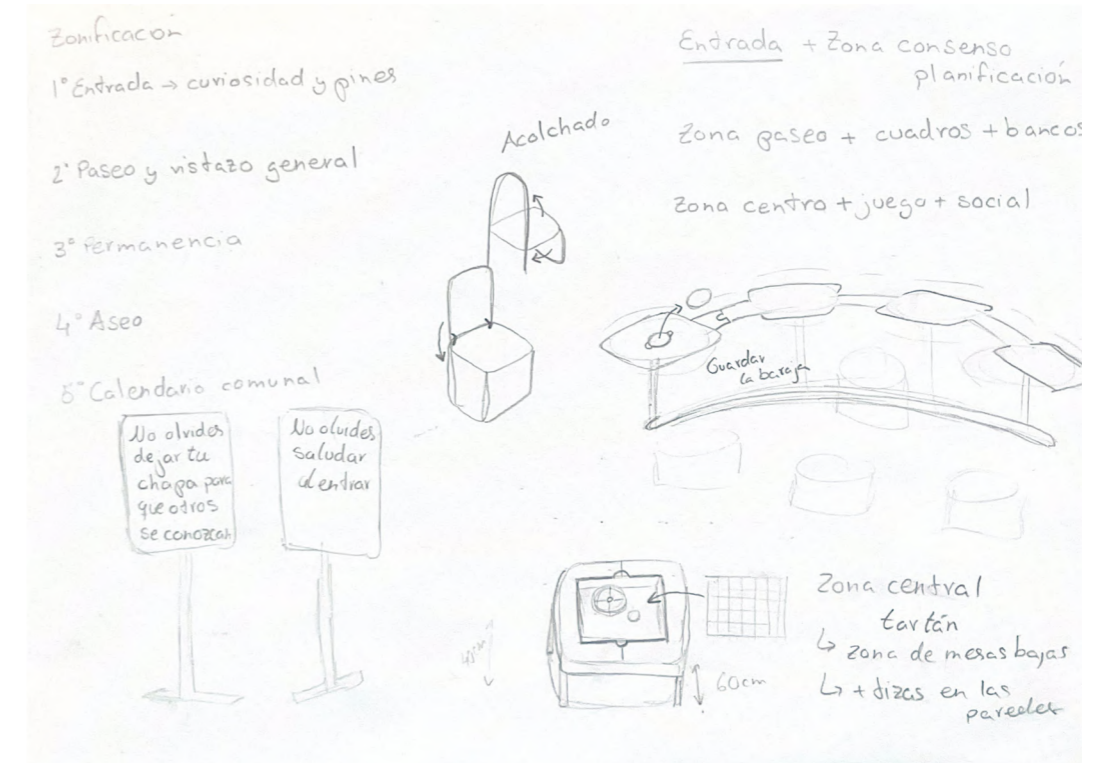 Zonificación
1° Entrada → curiosidad y pines
2° Paseo y vistazo general
3° Permanencia
4° Aseo
5° Calendario comunal
No olvides
dejar tu
chapa para
que otros
se conozcan
No olvides
saludar
al entrar
Acolchado
Entrada + Zona consenso
planificación
Zona paseo + cuadros + bancos
Zona centro + juego + social
Guardar
la baraja
60cm
Zona central
tartán
↳ zona de mesas bajas
↳ + tizas en las
paredes